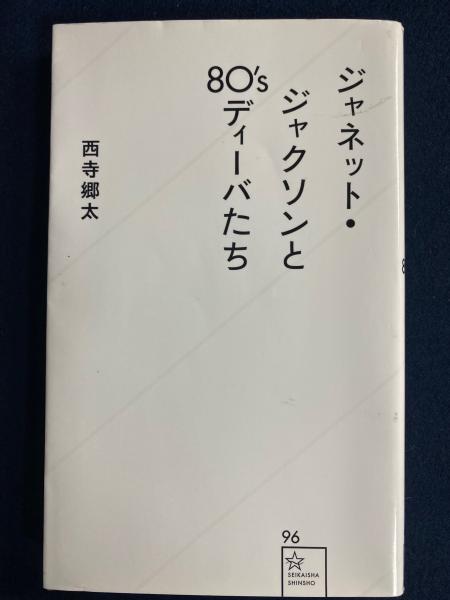 ジャネット・
ジャクソンと
80's
ディーバたち
西寺郷太
96
SEIKAISHA
SHINSHO
8